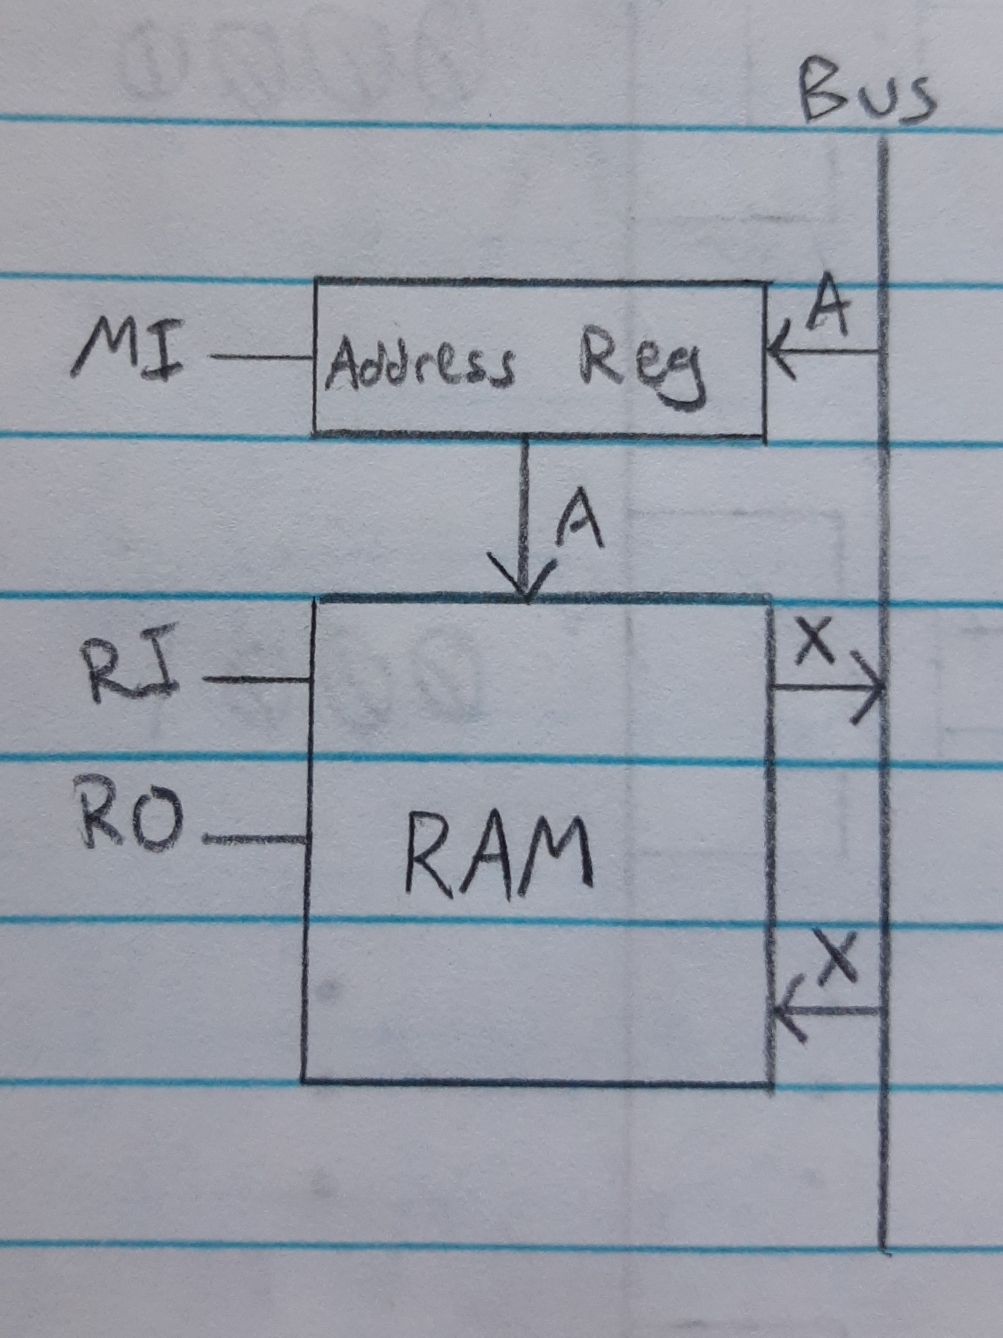 Bus
A
MI
Address Reg
A
RI
X
RO
RAM
X